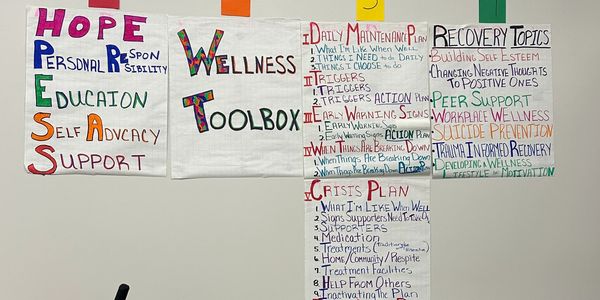 HOPE
PERSONAL RESPON
SIBILITY
EDUCAION
SELF ADVCACY
SUPPORT
WELLNESS
TOOLBOX
3
I DAILY MAINTENANCE PLAN
1. WHAT I'M LIKE WHEN WELL
2. THINGS I NEED TO DO DAILY
3. THINGS I CHOOSE TO DO
II TRIGGERS
1. TRIGGERS
2. TRIGGERS ACTION PLAN
III EARLY WARNING SIGNS
1. EARLY WARNING SIGNS
2. Early Warning Signs ACTION PLAN
IV WHEN THINGS ARE BREAKING DOWN
1. WHEN THINGS ARE BREAKING DOWN
2. WHEN THINGS ARE BREAKING DOWN
V CRISIS PLAN
1. WHAT I'M LIKE WHEN WELL
2. SIGNS SUPPORTERS NEED TO
3. SUPPORTERS
4. MEDICATION
5. TREATMENTS
6. HOME/COMMUNITY/RESPITE
7. TREATMENT FACILITIES
8. HELP FROM OTHERS
9. INACTIVATING THE PLAN
RECOVERY TOPICS
BUILDING SELF ESTEEM
CHANGING NEGATIVE THOUGHTS
TO POSITIVE ONES
PEER SUPPORT
WORKPLACE WELLNESS
SUICIDE PREVENTION
TRAUMA INFORMED RECOVERY
DEVELOPING A WELLNESS
LIFESTYLE & MOTIVATION